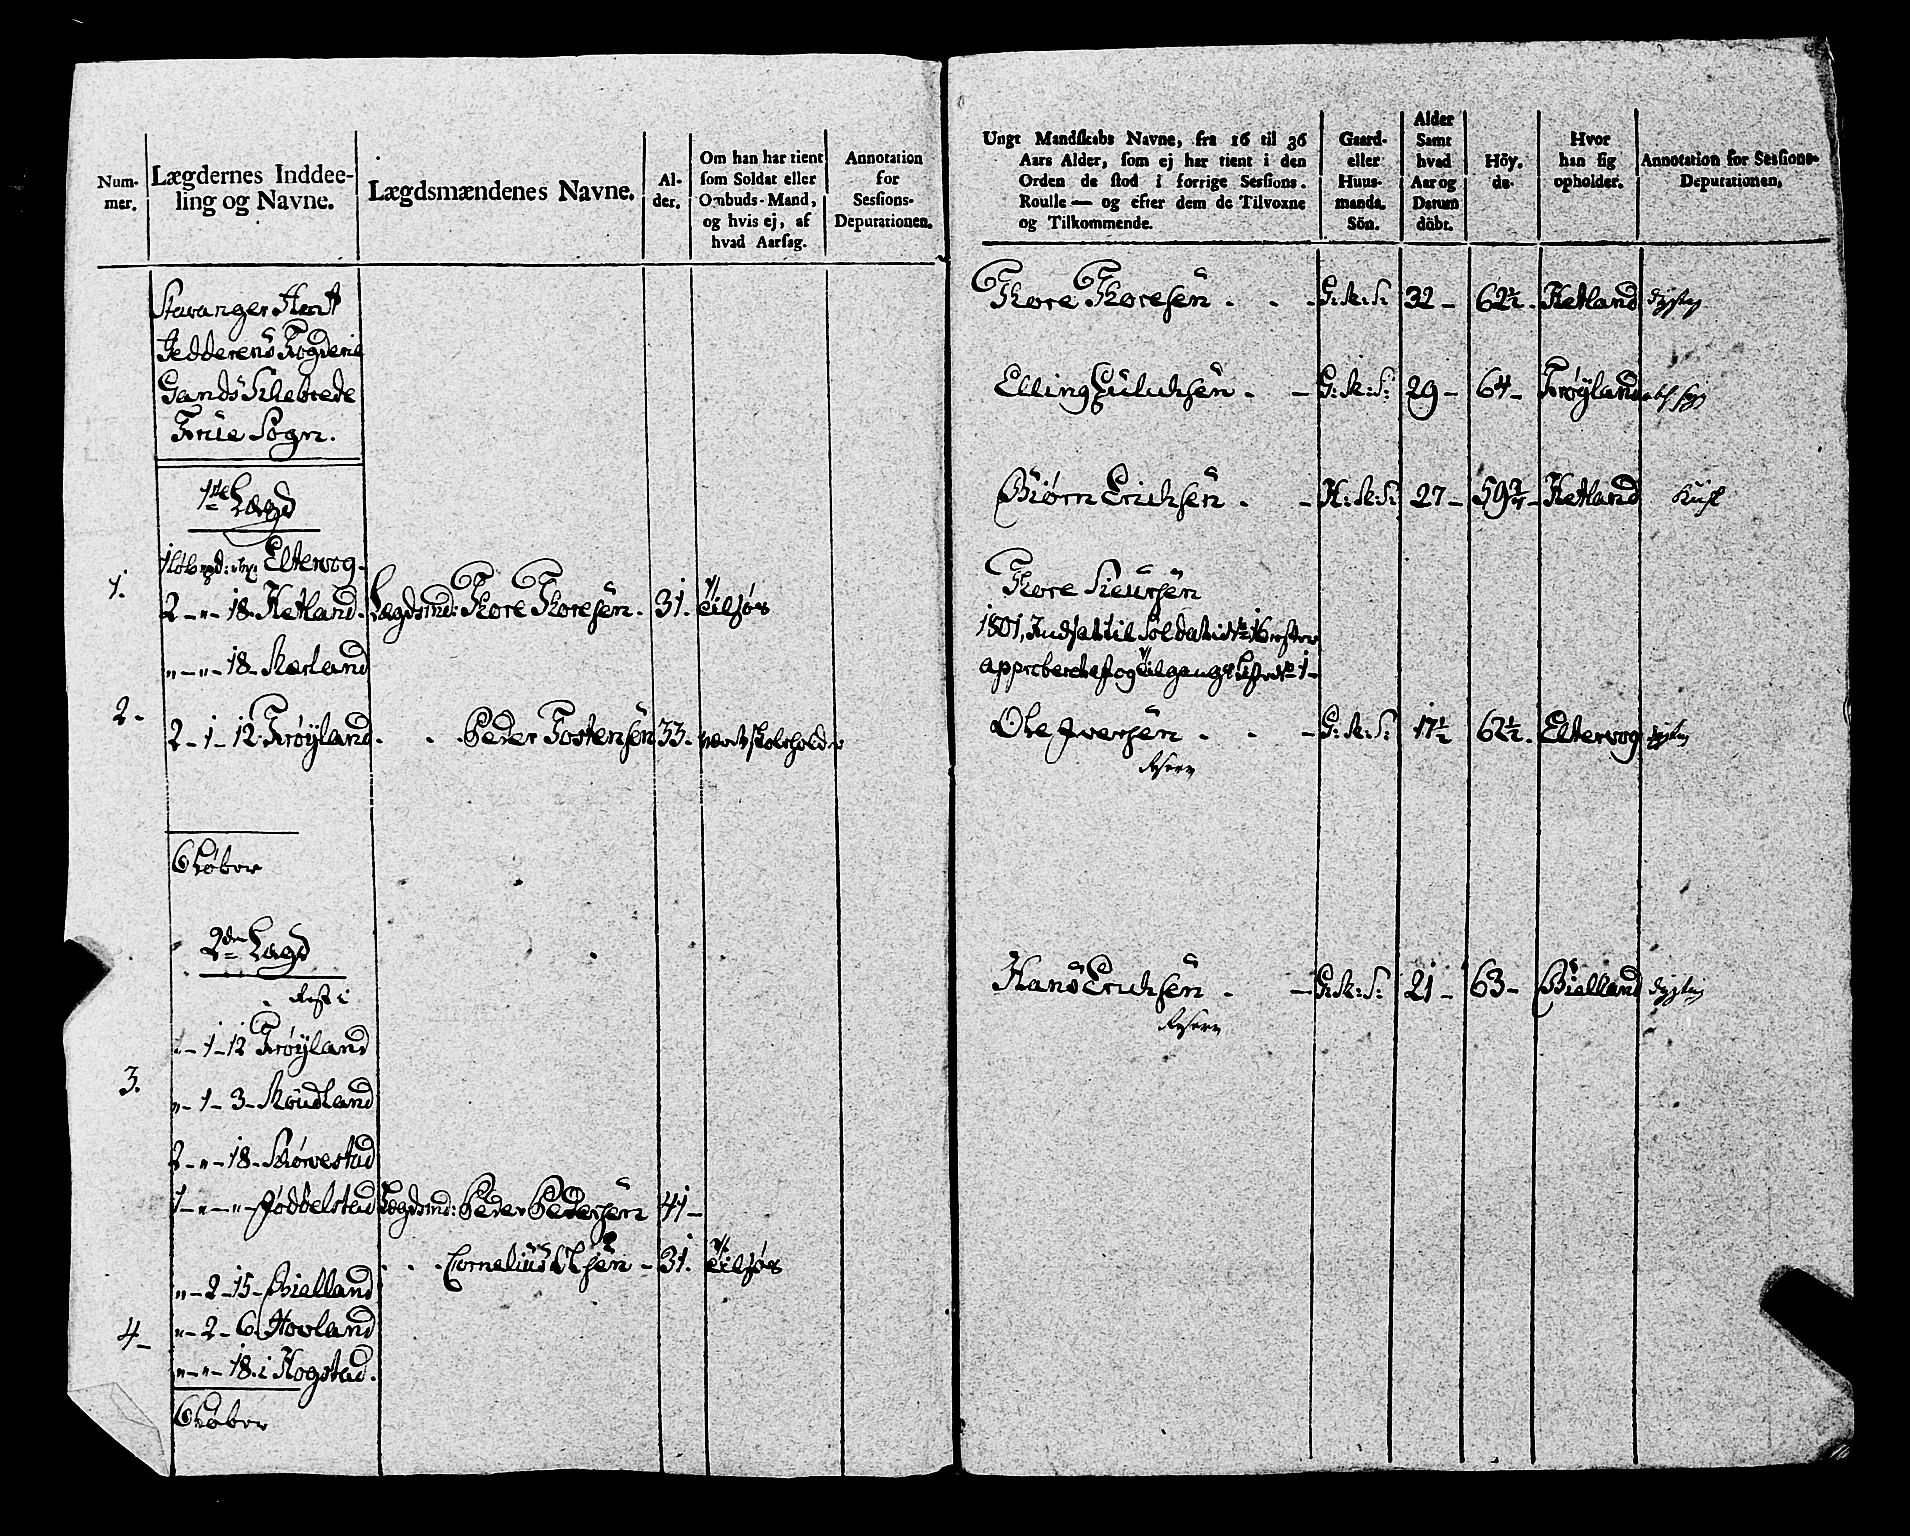 Num-
mer.
Lægdernes Inddee-
ling og Navne.
Lægdsmændenes Navne.
Al-
der.
Om han har tient
som Soldat eller
Ombuds-Mand,
og hvis ej, af
hvad Aarsag.
Annotation
for
Sessions-
Deputationen.
Stavanger Amt
Jedderens Fogderie
Gands Skibrede
Frue Sogn.
1ste Lægd
Eltervog
1.
2 - " - 18. Hetland. Lægdsmd: Thore Thoresen. 31.
" - " - 18. Mærland
2 -
2 - 1 - 12. Frøyland . . . Peder Tostensen 33.
6 Løber
2den Lægd
Rest i
1 - 12 Frøyland
3.
" - 1 - 3 - Møudland
2 - " - 18 - Skørvestad
1 - " - " - Jødbelstad Lægdsmd: Peder Pedersen 41 -
. . . Cornelius Olsen - 31.
" - 2 - 15 - Bielland
4 -
" - 2 - 6. Hovland
" - " - 18. i Hogstad.
6 Løber
Ungt Mandskabs Navne, fra 16 til 36
Aars Alder, som ej har tient i den
Orden de stod i forrige Sessions.
Roulle — og efter dem de Tilvoxne
og Tilkommende.
Gaard-
eller
Huus-
mands.
Sön.
Alder
Samt
hvad
Aar og
Datum
döbt.
Höy.
de.
Hvor
han sig
opholder.
Annotation for Sessions-
Deputationen.
Thore Thoresen . . . G: M: S: 32 - 62½. Hetland dygtig
Elling - G: M: S: 29 - 64 - Frøyland
Biørn Erichsen . - H: M: S: 27 - 59¾ - Hetland
Thore Sieursen
1801, Indsat til Soldat
approberet og
Ole Iversen . . - G: M: S: 17½ 62½. Eltervog dygtig
Reserve
Hans Erichsen . - G: M: S: 21 - 63 - Bielland dygtig
Reserve